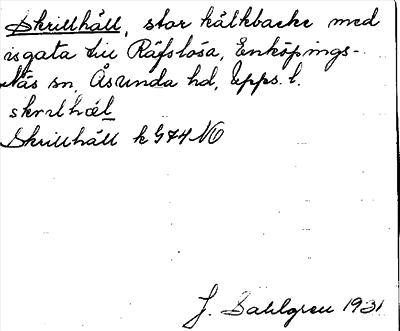 Skrillhäll, stor kälkbacke med
isgata till Räfslösa, Enköpings-
Näs sn, Åsunda hd, Upps. l.
skrilhæl
Skrillhäll k G74 NO
J. Sahlgren 1931